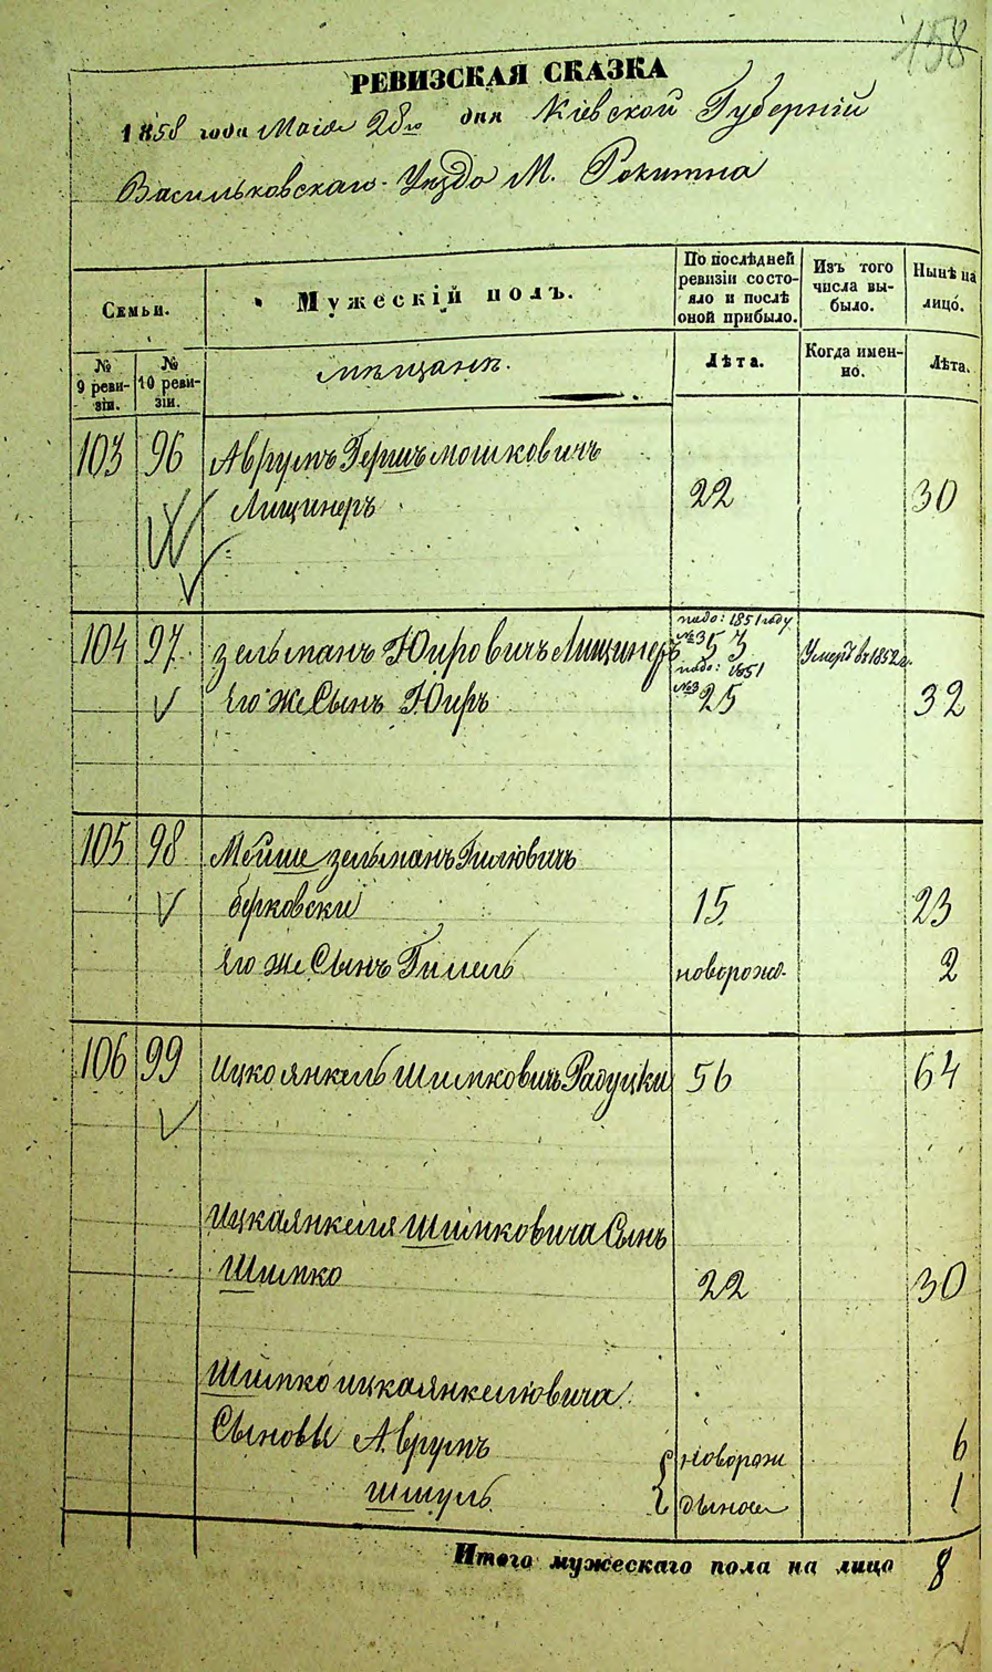 158
РЕВИЗСКАЯ СКАЗКА
1858 года Маія 28го дня Кіевской Губерніи
Васильковскаго Уѣзда М. Рокитна
Семьи.
Мужескій полъ.
По послѣдней ревизіи состояло и послѣ оной прибыло.
Изъ того числа выбыло.
Нынѣ на лицо.
№ 9 ревизіи.
№ 10 ревизіи.
мѣщане.
Лѣта.
Когда именно.
Лѣта.
103 96 Аврумъ Гершъ мошковичъ
Лищинеръ 22 30
104 97 Зельманъ Юировичъ Лищинеръ 53 Умеръ въ 1852 г.
1851 году
№3
1851
№3
Его же Сынъ Юиръ 25 32
105 98 Мойше зельманъ Гилювичъ
берковски 15 23
Его же Сынъ Гилель новорожд. 2
106 99 Ицко янкель Шимковичъ Радуцки 56 64
Ицкаянкеля Шимковича Сынъ
Шимко 22 30
Шимко ицкаянкелювича
Сыновья Аврумъ новорож 6
Шмуль дыноы 1
Итого мужескаго пола на лицо 8